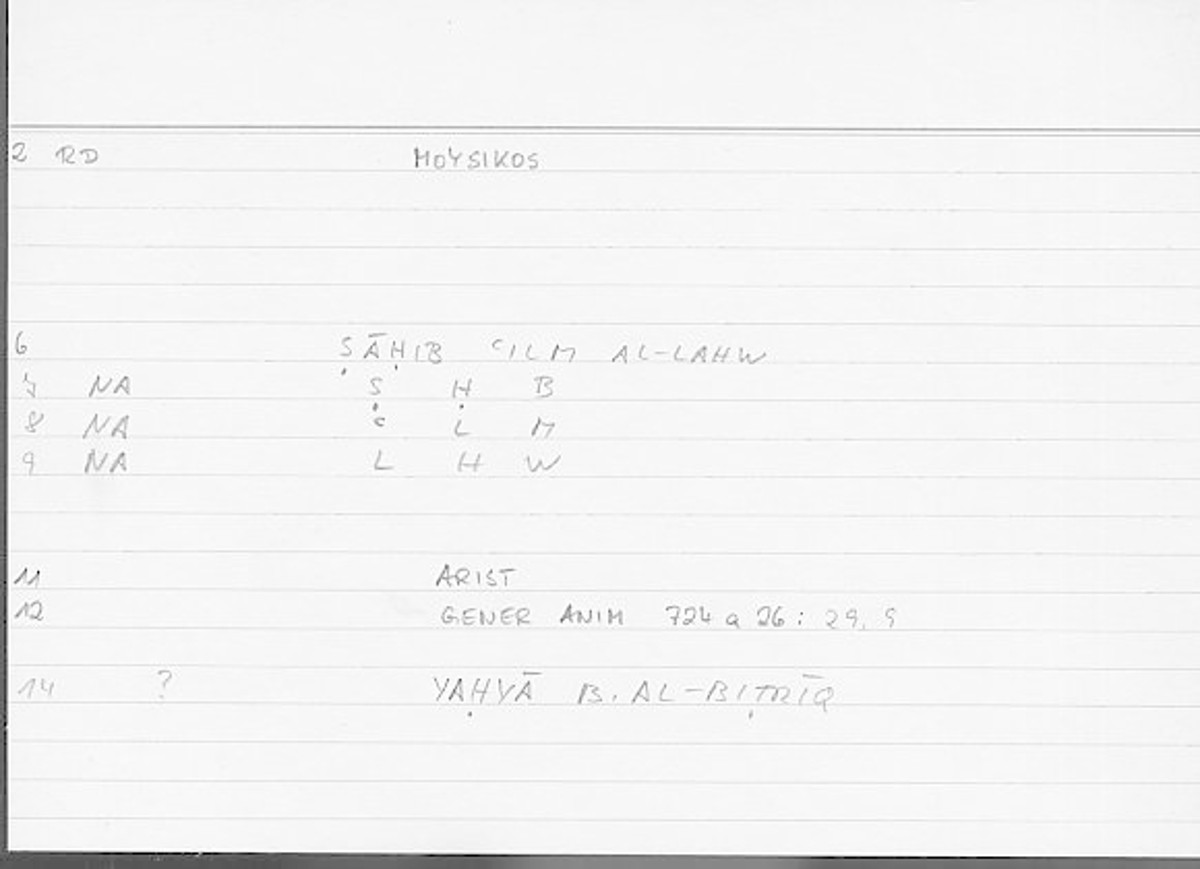 2 RD MOYSIKOS
6 ṢĀḤIB ʿILM AL-LAHW
7 NA Ṣ Ḥ B
8 NA ʿ L M
9 NA L H W
11 ARIST
12 GENER ANIM 724 a 26 : 29, 9
14 ? YAḤYĀ B. AL-BIṬRĪQ